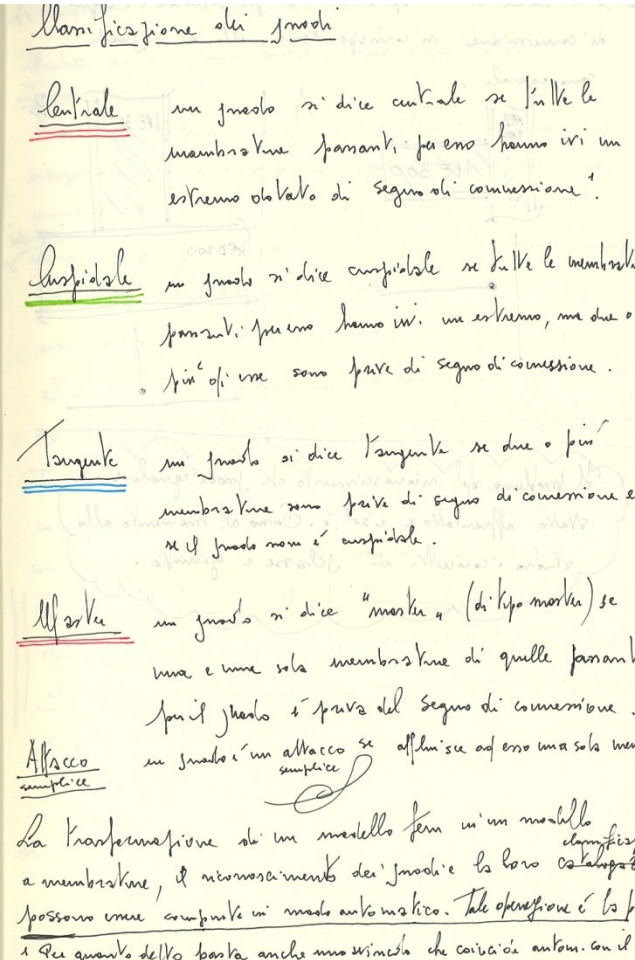 Classificazione dei nodi
Centrale un nodo si dice centrale se tutte le
membrature passanti per esso hanno ivi un
estremo dotato di segno di connessione¹.
Cuspidale un nodo si dice cuspidale se tutte le membrat
passanti per esso hanno ivi un estremo, ma due o
più di esse sono prive di segno di connessione.
Tangente un nodo si dice tangente se due o più
membrature sono prive di segno di connessione e
se il nodo non è cuspidale.
Master un nodo si dice "master" (di tipo master) se
una e una sola membratura di quelle passant
per il nodo è priva del segno di connessione.
Attacco semplice un nodo è un attacco semplice se affluisce ad esso una sola mem
La trasformazione di un modello fem in un modello
a membrature, il riconoscimento dei nodi e la loro classifica
possono essere compiute in modo automatico. Tale operazione è la p
1 Per quanto detto basta anche uno svincolo che coincide autom. con il